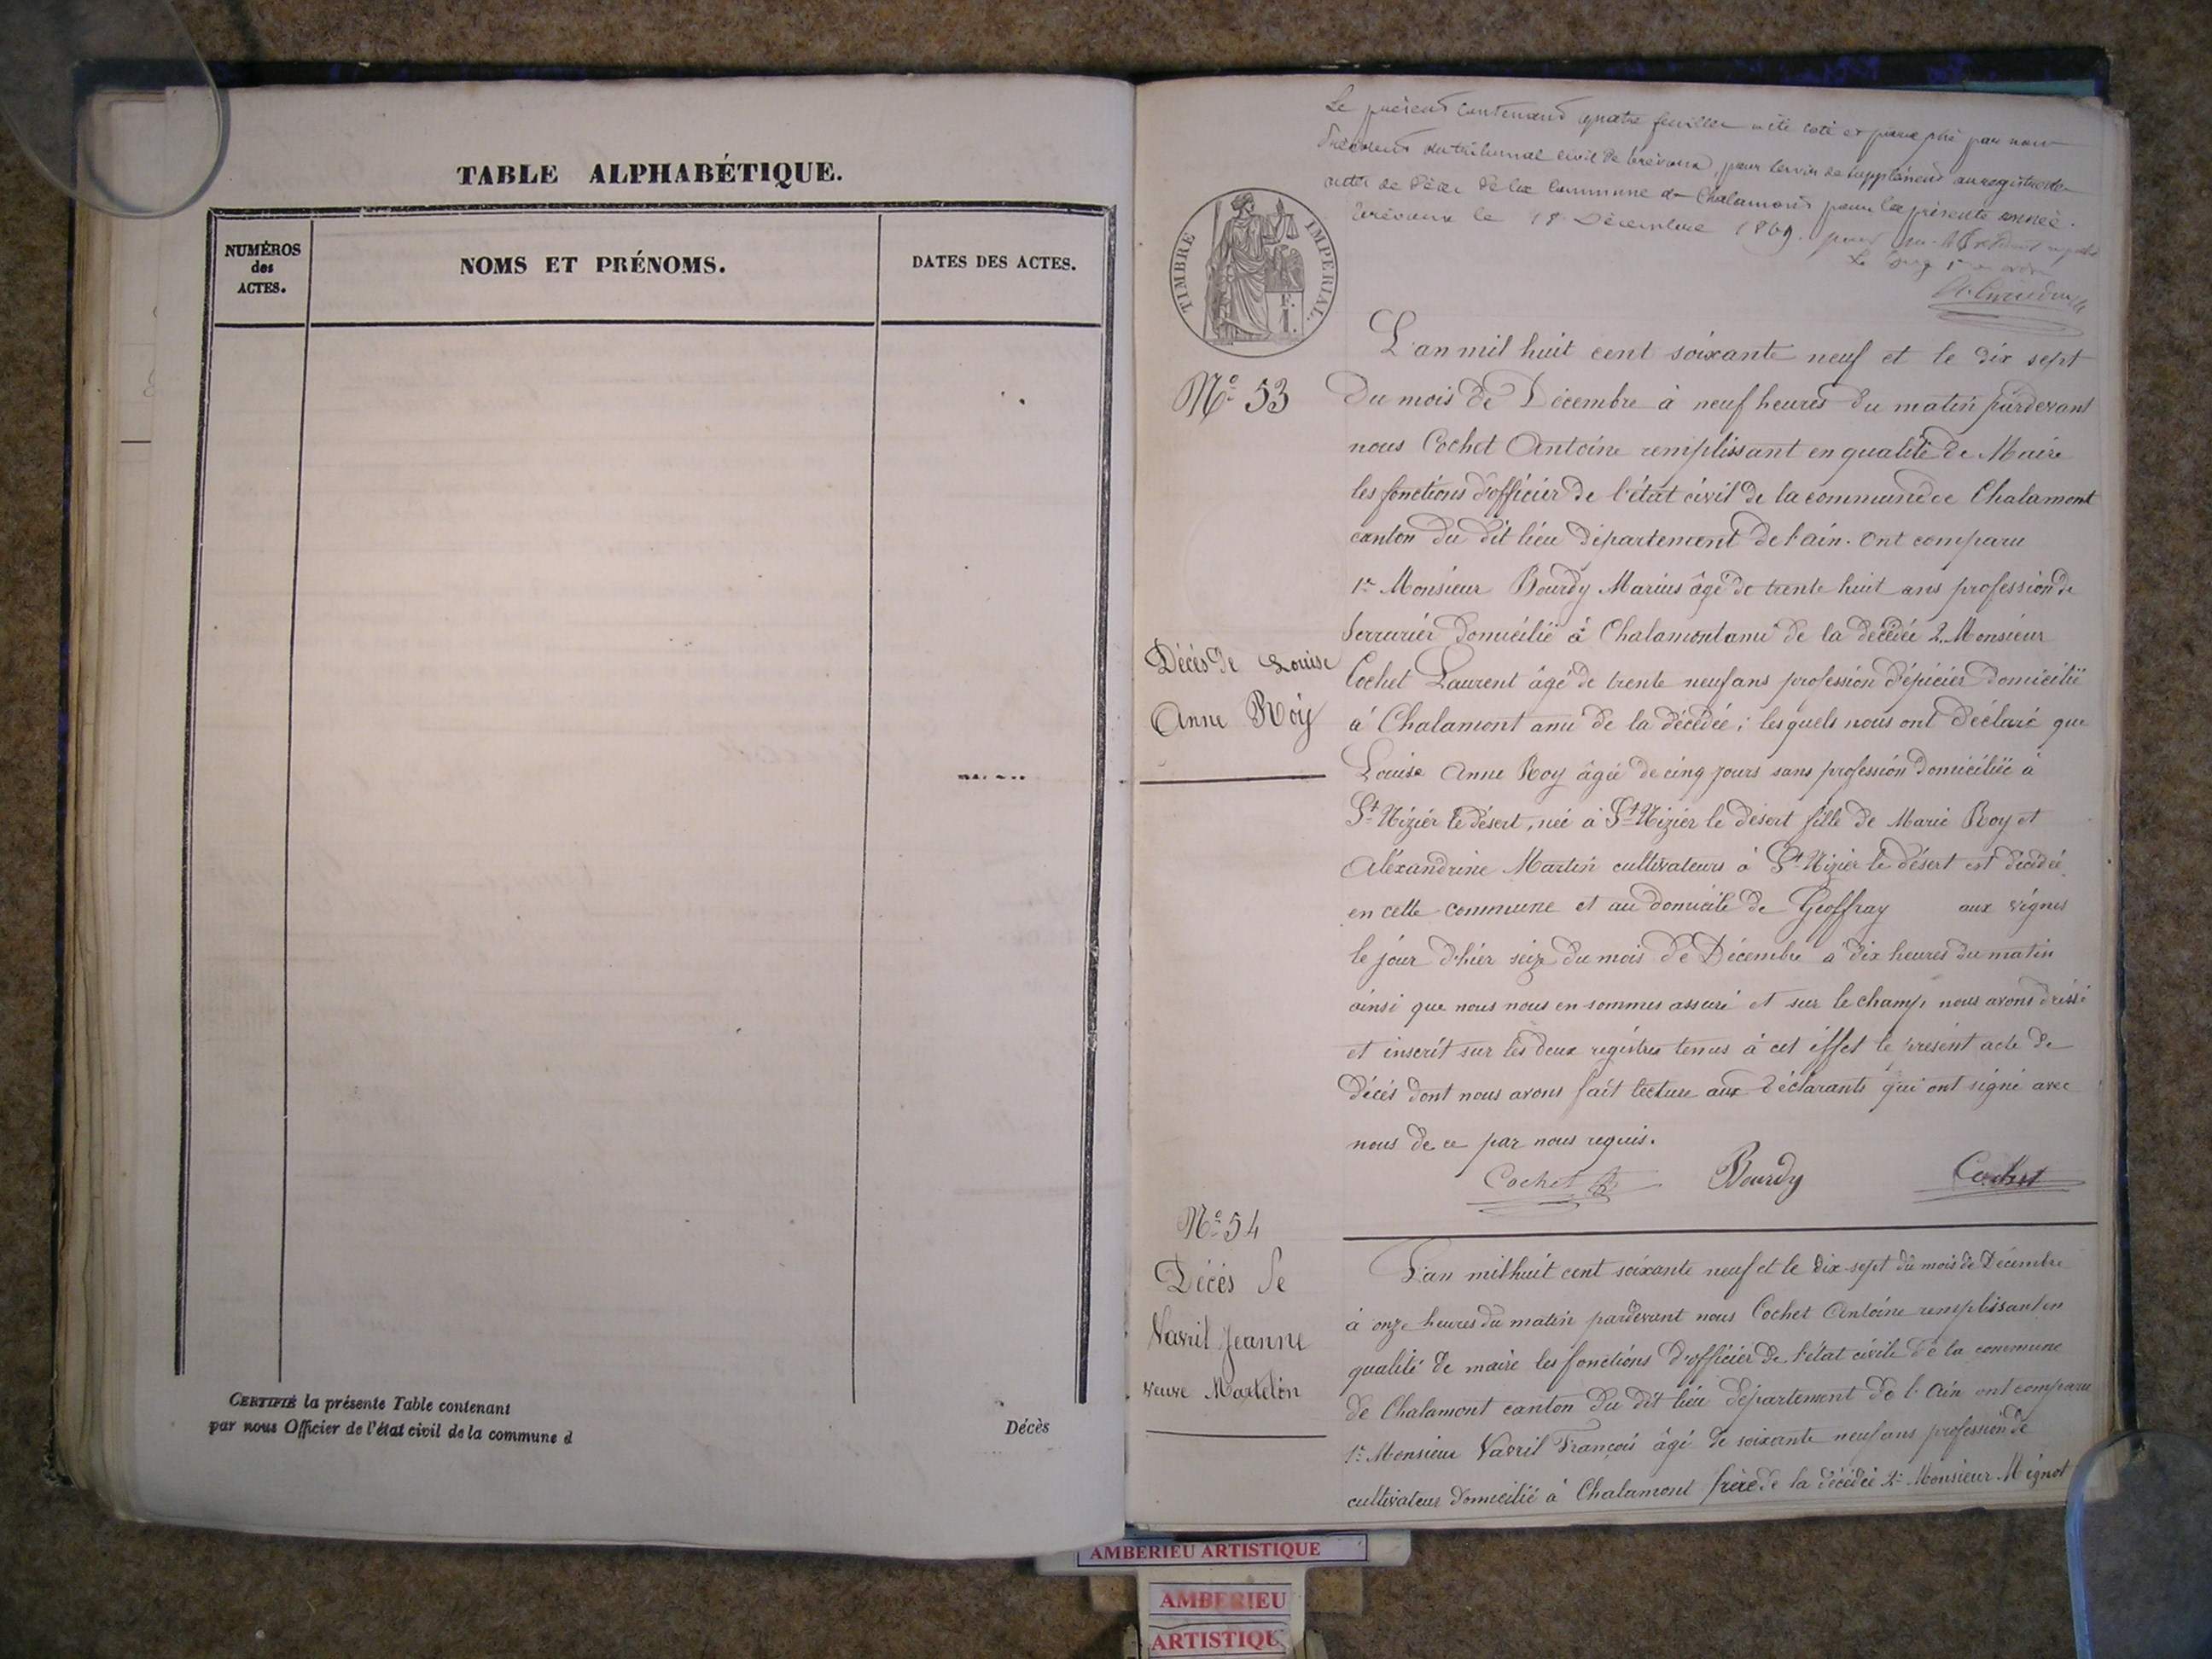 TABLE ALPHABÉTIQUE.
NUMÉROS
des
ACTES.
NOMS ET PRÉNOMS.
DATES DES ACTES.
CERTIFIÉ la présente Table contenant
par nous Officier de l'état civil de la commune d
Décès
Le présent contenant quatre feuilles a été coté et paraphé par nous
Président du tribunal civil de Trévoux, pour servir de supplément au registre de
actes de Décès de la Commune de Chalamont pour la présente année.
Trévoux le 18 Décembre 1869. pour
Le juge
TIMBRE IMPÉRIAL.
L'an mil huit cent soixante neuf et le dix sept
N° 53
du mois de Décembre à neuf heures du matin pardevant
nous Cochet Antoine remplissant en qualité de Maire
les fonctions d'officier de l'état civil de la commune de Chalamont
canton du dit lieu département de l'ain. Ont comparu
1° Monsieur Bourdy Marius âgé de trente huit ans profession de
Serrurier domicilié à Chalamont ami de la décédée 2. Monsieur
Décès de Louise
Anne Roy
Cochet Laurent âgé de trente neuf ans profession d'épicier domicilié
à Chalamont ami de la décédée; lesquels nous ont déclaré que
Louise Anne Roy âgée de cinq jours sans profession domiciliée à
St Nizier le désert, née à St Nizier le désert fille de Marie Roy et
Alexandrine Martin cultivateurs à St Nizier le désert est décédée
en cette commune et au domicile de Geoffray aux vignes
le jour d'hier seize du mois de Décembre à dix heures du matin
ainsi que nous nous en sommes assuré et sur le champ nous avons dressé
et inscrit sur les deux registres tenus à cet effet le présent acte de
décès dont nous avons fait lecture aux déclarants qui ont signé avec
nous de ce par nous requis.
Cochet Bourdy Cochet
N° 54
Décès de
Vavril Jeanne
veuve Martelin
L'an mil huit cent soixante neuf et le dix-sept du mois de Décembre
à onze heures du matin pardevant nous Cochet Antoine remplissant en
qualité de maire les fonctions d'officier de l'état civile de la commune
de Chalamont canton du dit lieu département de l'Ain ont comparu
1° Monsieur Vavril François âgé de soixante neuf ans profession de
cultivateur domicilié à Chalamont frère de la décédée 2° Monsieur Mignot
AMBERIEU ARTISTIQUE
AMBERIEU
ARTISTIQU